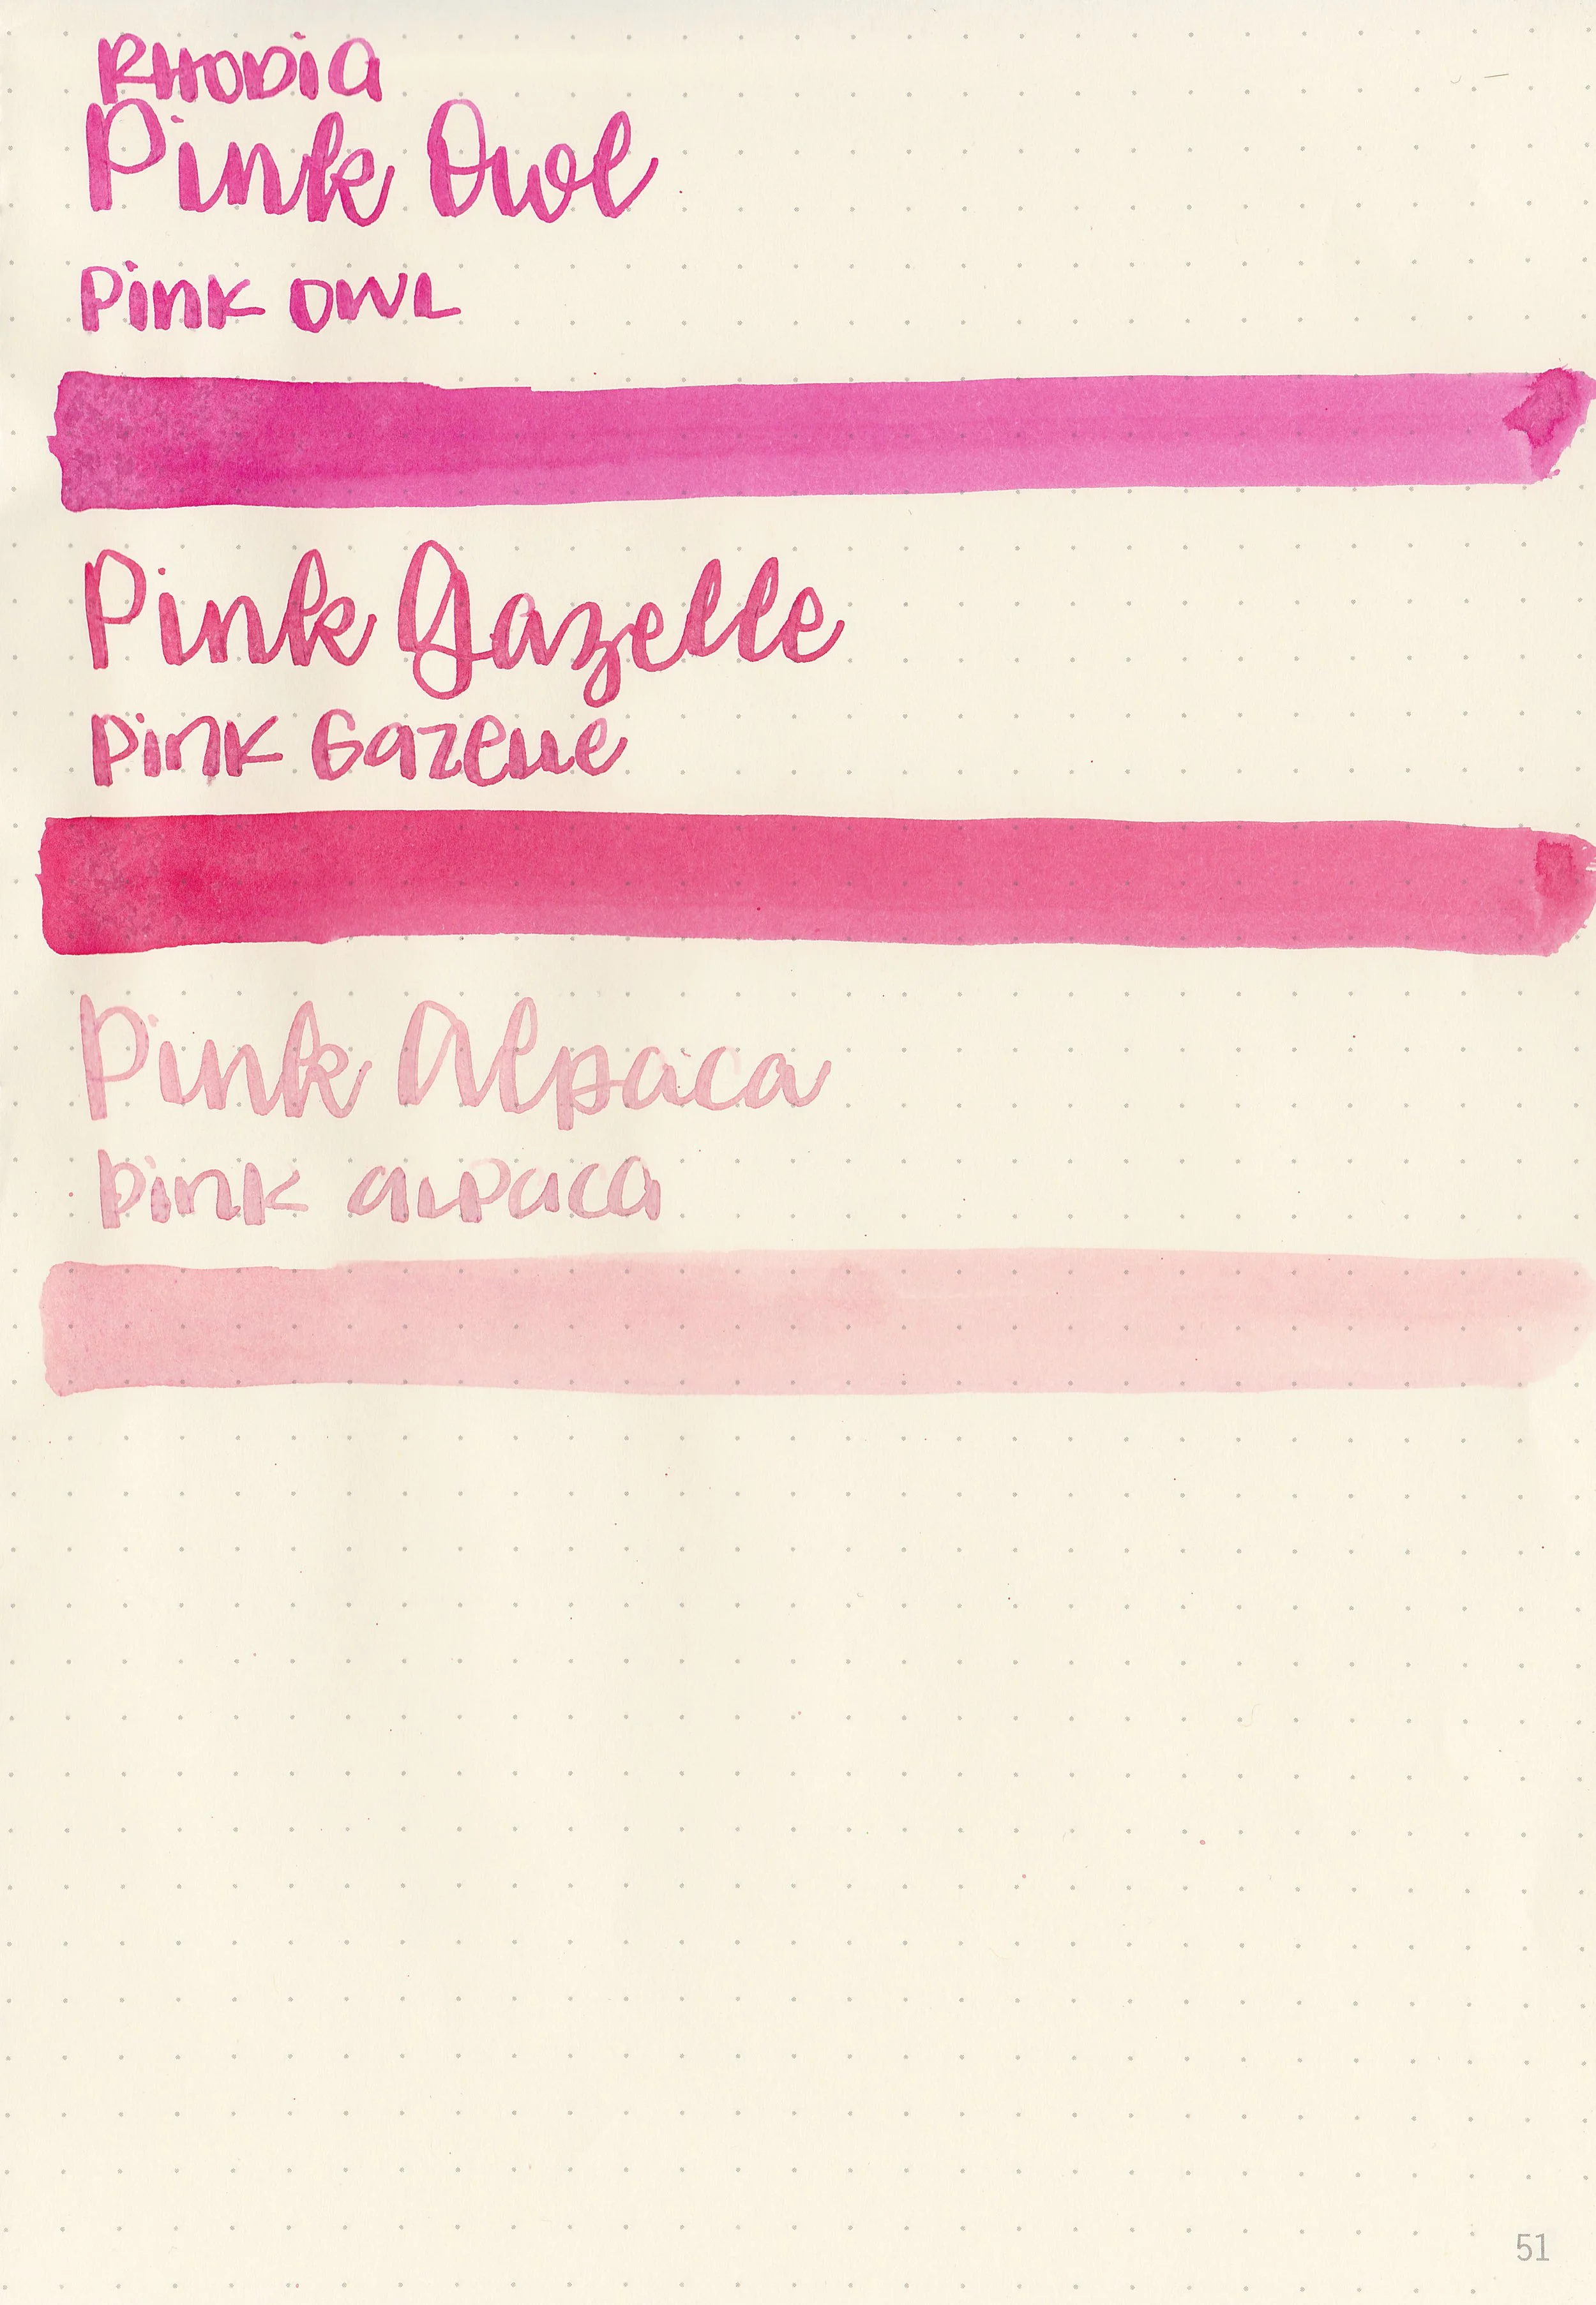 RHODIA
Pink Owl
Pink OWL
Pink Gazelle
Pink Gazelle
Pink Alpaca
Pink alpaca
51